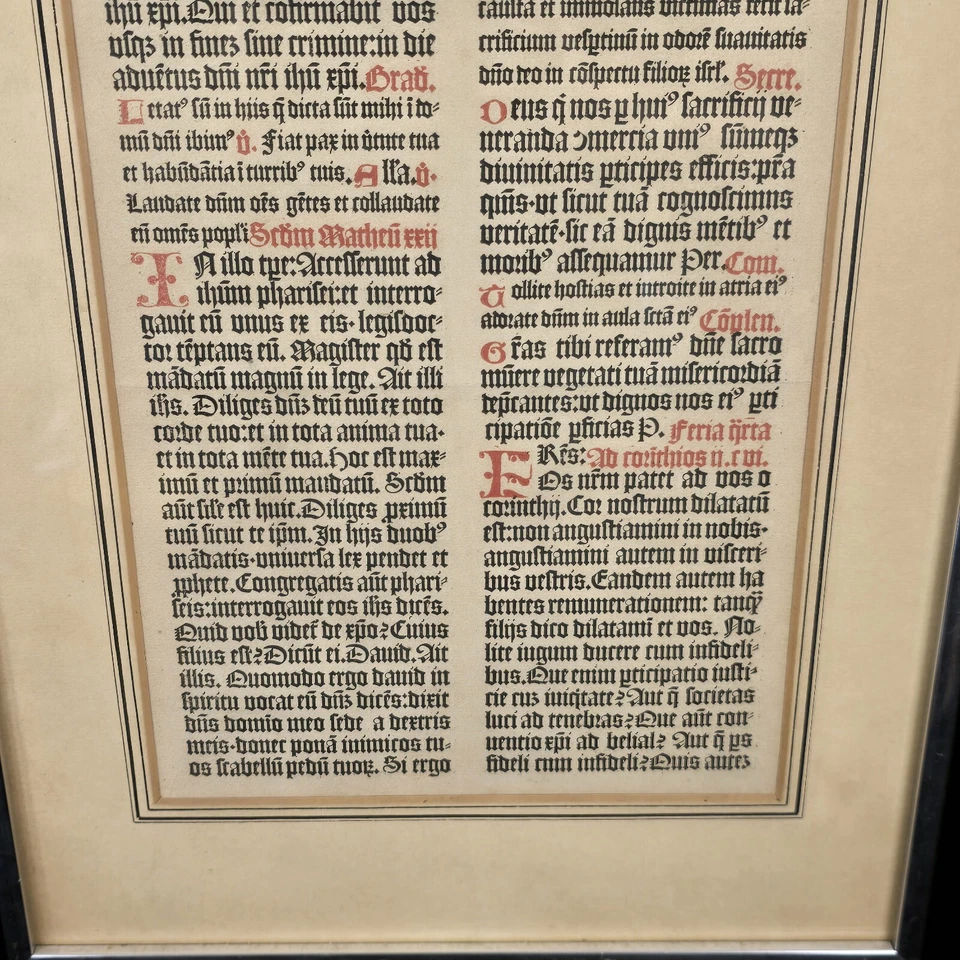 ihū xp̄i. Qui et cōfirmabit vos
vsqꝫ in finez sine crimine: in die
aduētus dn̄i nr̄i ihū xp̄i. Grad̄.
Letatꝰ sū in hiis q̄ dicta sūt mihi ī do⸗
mū dn̄i ibimꝰ v̄. Fiat pax in v̄tute tua
et habūdātia ī turribꝰ tuis. Alľa. v̄.
Laudate dn̄m oēs gētes et collaudate
eū omēs popľi Scd̄m Matheū xxij
IN illo tp̄e: Accesserunt ad
ihūm pharisei: et interro⸗
gauit eū vnus ex eis· legisdoc⸗
tor tēptans eū. Magister qd̄ est
mādatū magnū in lege. Ait illi
ih̄s. Diliges dn̄z deū tuū ex toto
corde tuo: et in tota anima tua·
et in tota mēte tua. Hoc est max⸗
imū et primū mandatū. Scd̄m
aūt sil̄e est huic. Diliges ꝓximū
tuū sicut te ip̄m. In hijs duobꝰ
mādatis· vniuersa lex pendet et
ꝓphete. Congregatis aūt phari⸗
seis: interrogauit eos ih̄s dicēs.
Quid vob̄ videt̄ de xp̄o? Cuius
filius est? Dicūt ei. Dauid. Ait
illis. Quomodo ergo dauid in
spiritu vocat eū dn̄z dicēs: dixit
dn̄s domīo meo sede a dextris
meis· donec ponā inimicos tu⸗
os scabellū pedū tuoꝝ. Si ergo
et immolans victimas
crificium vesꝑtinū in odorē suauitatis
dn̄o deo in cōspectu filioꝝ isrl̄. Secre.
Deus q̄ nos ꝑ huiꝰ sacrificij ve⸗
neranda ↄmercia vniꝰ sūmeqꝫ
diuinitatis ꝑticipes efficis: p̄ta
qūis· vt sicut tuā cognoscimus
veritatē· sic eā dignis mētibꝰ et
moribꝰ assequamur Per. Com.
Tollite hostias et introite in atria eiꝰ
adorate dn̄m in aula sctā eiꝰ Cōplen.
Gr̄as tibi referamꝰ dn̄e sacro
mūere vegetati tuā misericordiā
dep̄cantes: vt dignos nos eiꝰ ꝑti
cipatiōe ꝑficias P. Feria q̄rta
FRēs: Ad corīthios ij. c vi.
Os nr̄m patet ad vos o
corinthij. Cor nostrum dilatatū
est: non angustiamini in nobis·
angustiamini autem in visceri⸗
bus vestris. Eandem autem ha
bentes remunerationem: tanq̄
filijs dico dilatamī et vos. No⸗
lite iugum ducere cum infideli⸗
bus. Que enim ꝑticipatio iusti⸗
cie cuz iniq̄tate? Aut q̄ societas
luci ad tenebras? Que aūt con⸗
uentio xp̄i ad belial? Aut q̄ ꝑs
fideli cum infideli? Quis autez